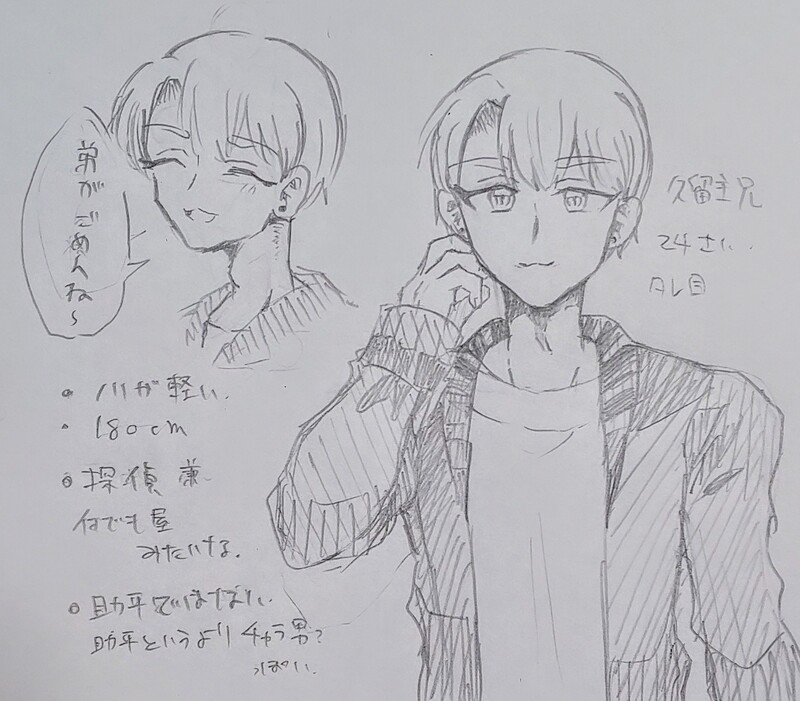 弟がごめんね〜
久留主兄
24さい.
タレ目
• ノリが軽い.
• 180cm
• 探偵兼
何でも屋
みたいな.
• 助平ではない.
助平というよりチャラ男?
っぽい.